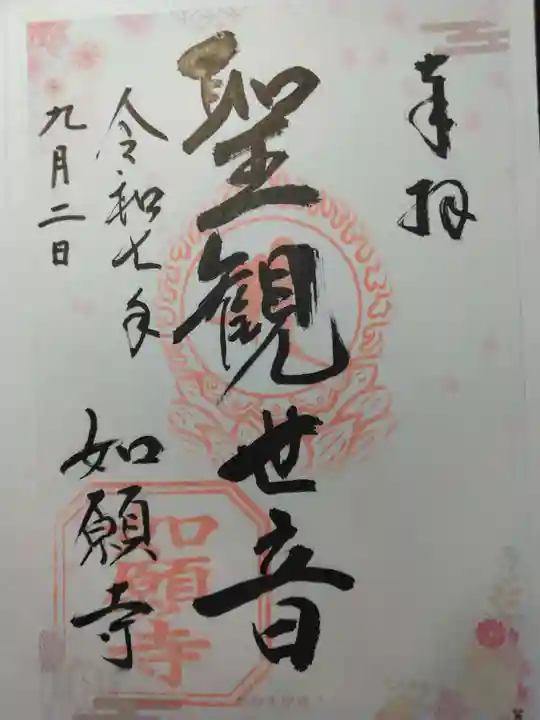 奉拝
聖観世音
令和七年
九月二日
如願寺
如願寺